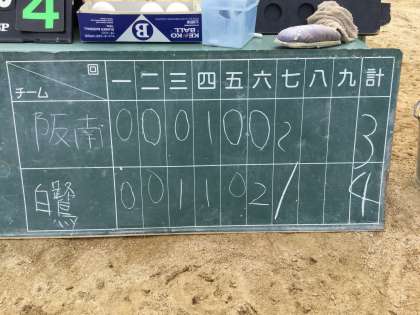 4
KENKO BALL
B
KENKO BALL
回 一 二 三 四 五 六 七 八 九 計
チーム
阪南 0 0 0 1 0 0 2 3
白鷺 0 0 1 1 0 2 / 4